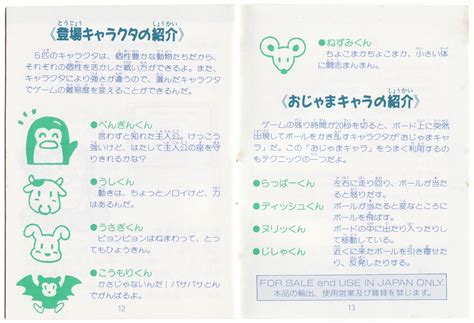 とうじょう しょうかい
《登場キャラクタの紹介》
5匹のキャラクタは、個性豊かな動物たちだから、
それぞれの個性を活かした戦い方ができるよ。また、
キャラクタにより強さが違うので、選んだキャラクタ
でゲームの難易度を変えることができるんだ。
●ぺんぎんくん
言わずと知れた主人公。けっこう
強いけど、はたして主人公の座を守
りきれるかな?
●うしくん
動きは、ちょっとノロイけど、力
はあるんだ。
●うさぎくん
ピョンピョンはねまわって、とっ
てもひょうきん。
●こうもりくん
かきじゃないんだ!バサバサとん
でがんばるよ。
12
●ねずみくん
ちょこまかちょこまか、小さい体
に闘志まんまん。
しょうかい
《おじゃまキャラの紹介》
ゲームの残り時間が20秒を切ると、ボード上に突然
出現してボールをかき乱すキャラクタが「おじゃまキャ
ラ」だ。この「おじゃまキャラ」をうまく利用するの
もテクニックの一つだよ。
●らっぱーくん 左右に走り回り、ボールが当た
ると怒りだす。
●ティッシュくん ボールが当たると変なところに
ボールを飛ばす。
●ヌリッくん ボードの中に出たり入ったりし
て移動している。
●じしゃくん 近くに来たボールを引き寄せた
り、反発したりする。
FOR SALE and USE IN JAPAN ONLY.
本品の輸出、使用営業及び賃貸を禁じます。
13